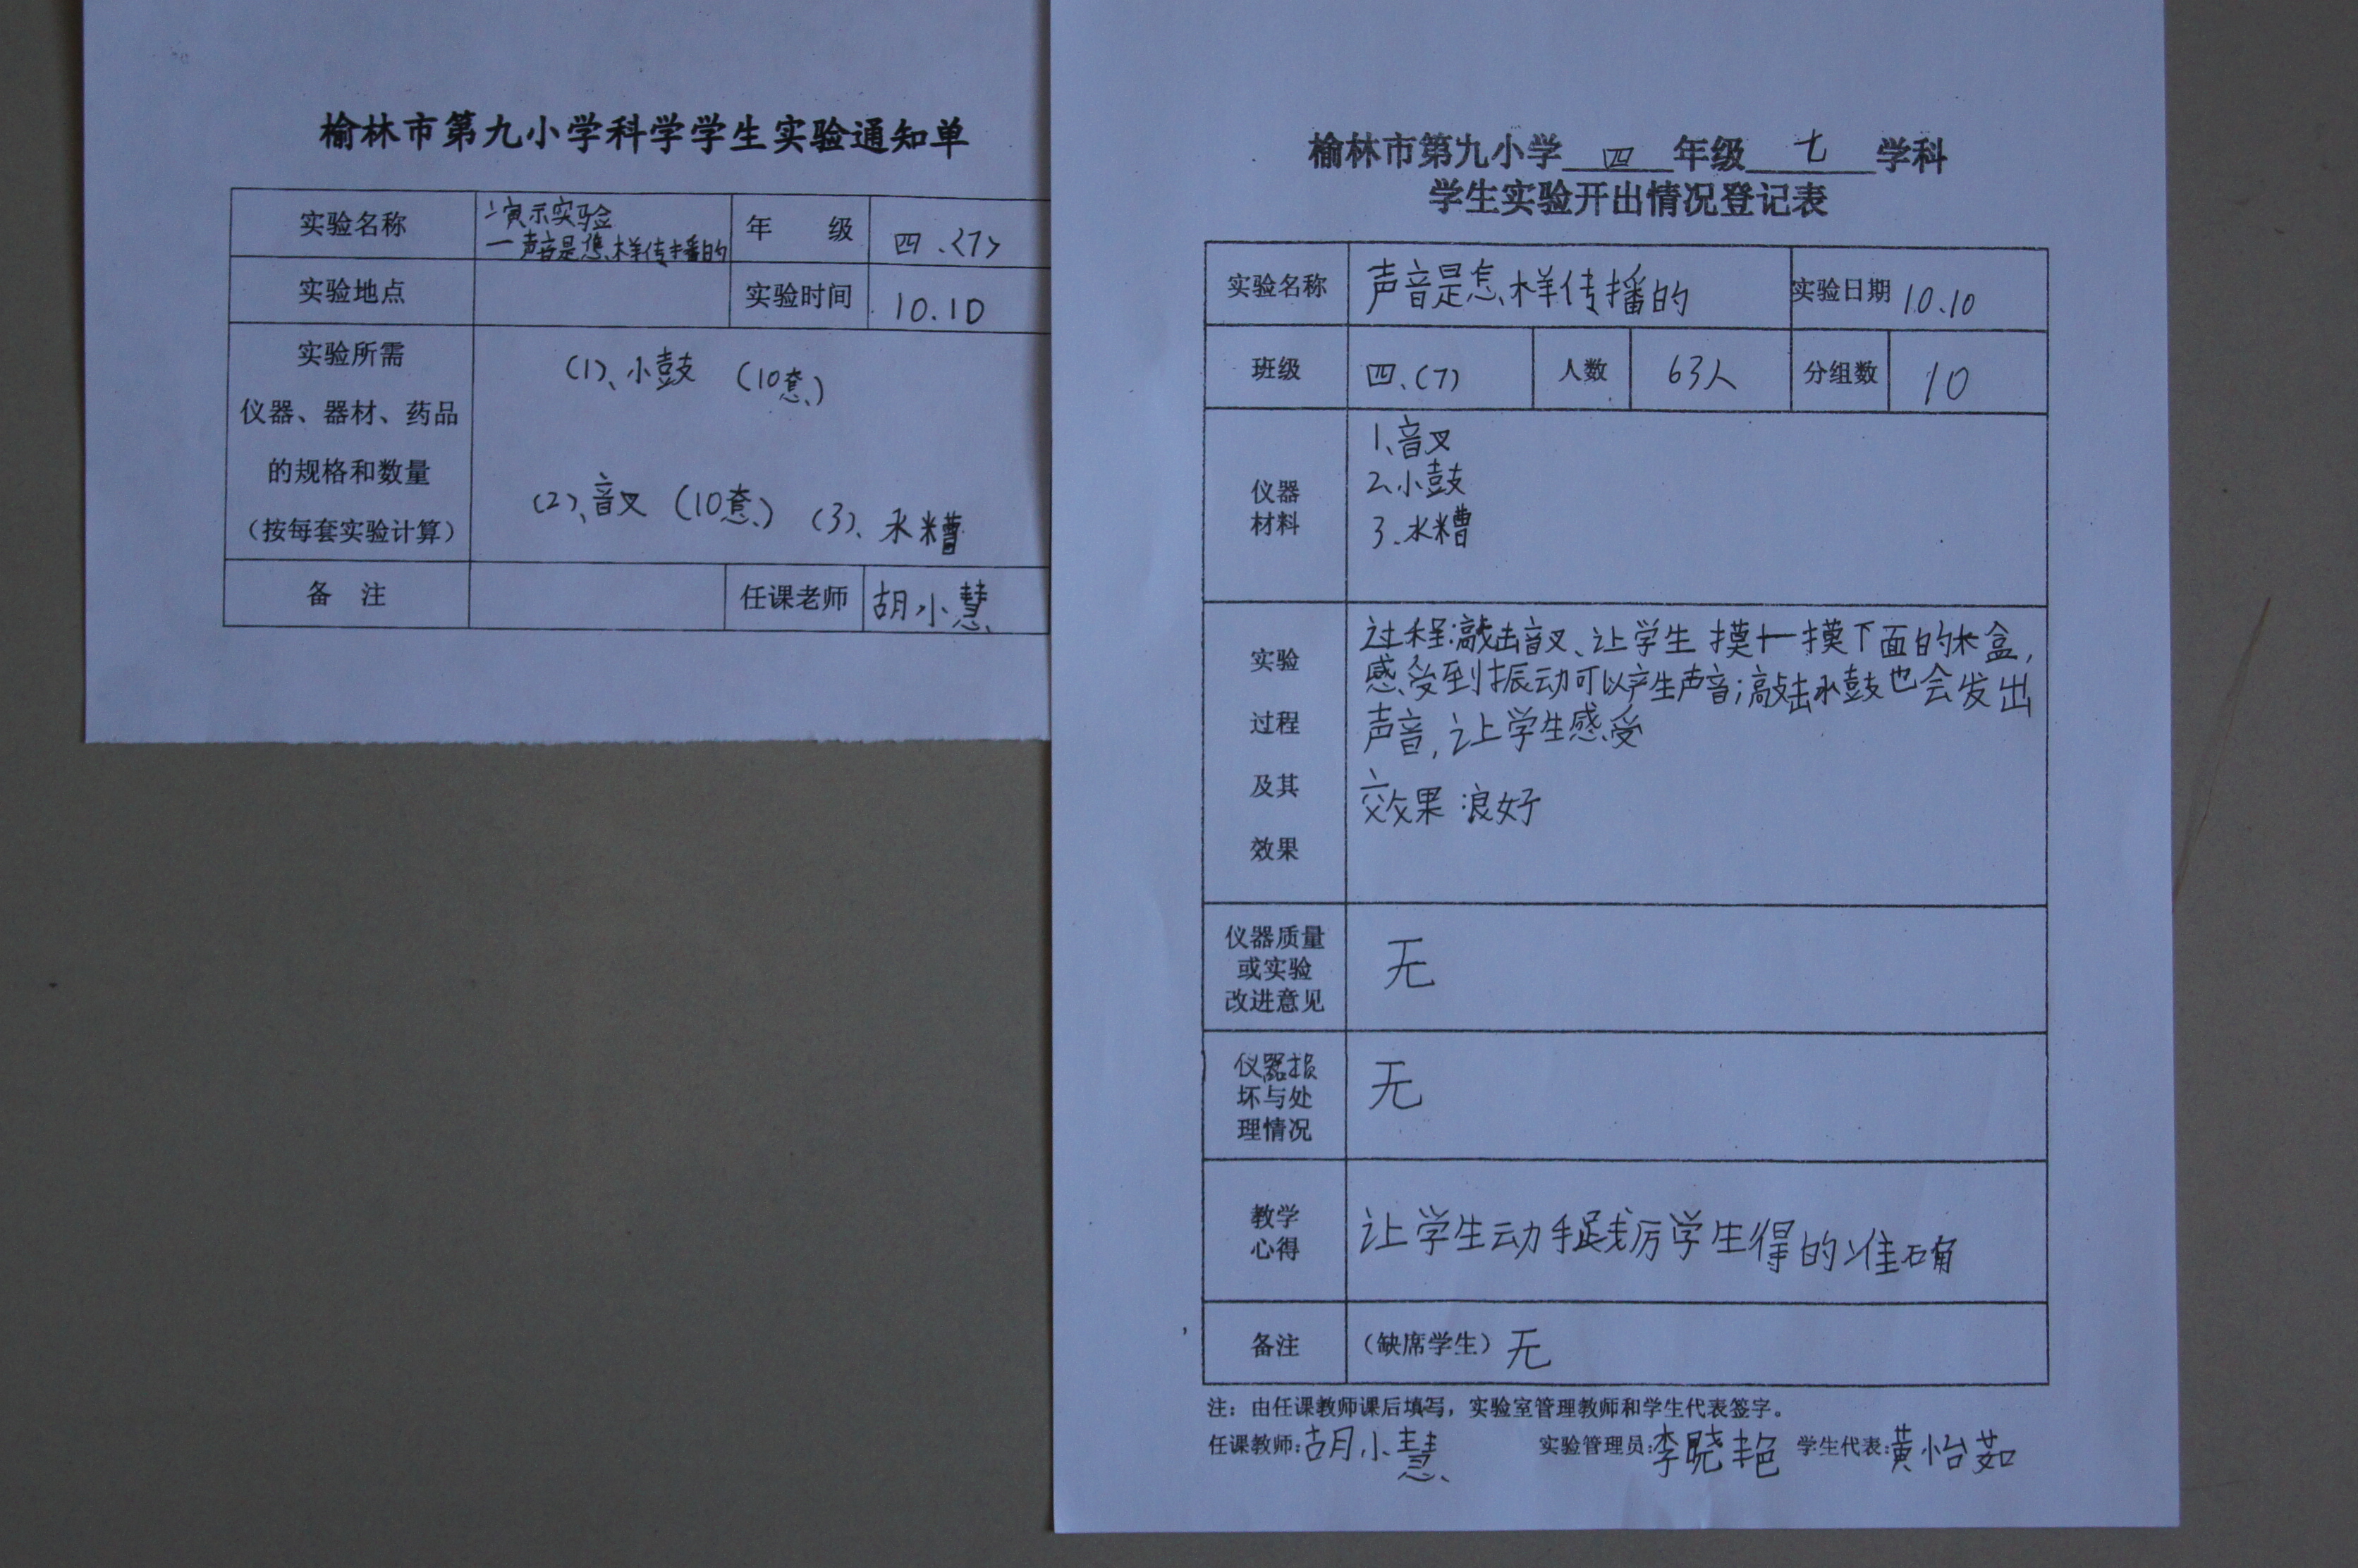 榆林市第九小学科学学生实验通知单
实验名称 演示实验
一声音是怎样传播的 年 级 四.〈7〉
实验地点 实验时间 10.10
实验所需
仪器、器材、药品
的规格和数量
（按每套实验计算）
(1)、小鼓 (10套)
(2)、音叉 (10套) (3)、水槽
备 注 任课老师 胡小慧
榆林市第九小学 四 年级 七 学科
学生实验开出情况登记表
实验名称 声音是怎样传播的 实验日期 10.10
班级 四.(7) 人数 63人 分组数 10
仪器
材料
1、音叉
2、小鼓
3、水槽
实验
过程
及其
效果
过程:敲击音叉、让学生摸一摸下面的木盒,
感受到振动可以产生声音;敲击小鼓也会发出
声音,让学生感受
效果:良好
仪器质量
或实验
改进意见
无
仪器损
坏与处
理情况
无
教学
心得
让学生动手践 学生得的准确
备注 （缺席学生）无
注：由任课教师课后填写，实验室管理教师和学生代表签字。
任课教师:胡小慧 实验管理员:李晓艳 学生代表:黄怡茹